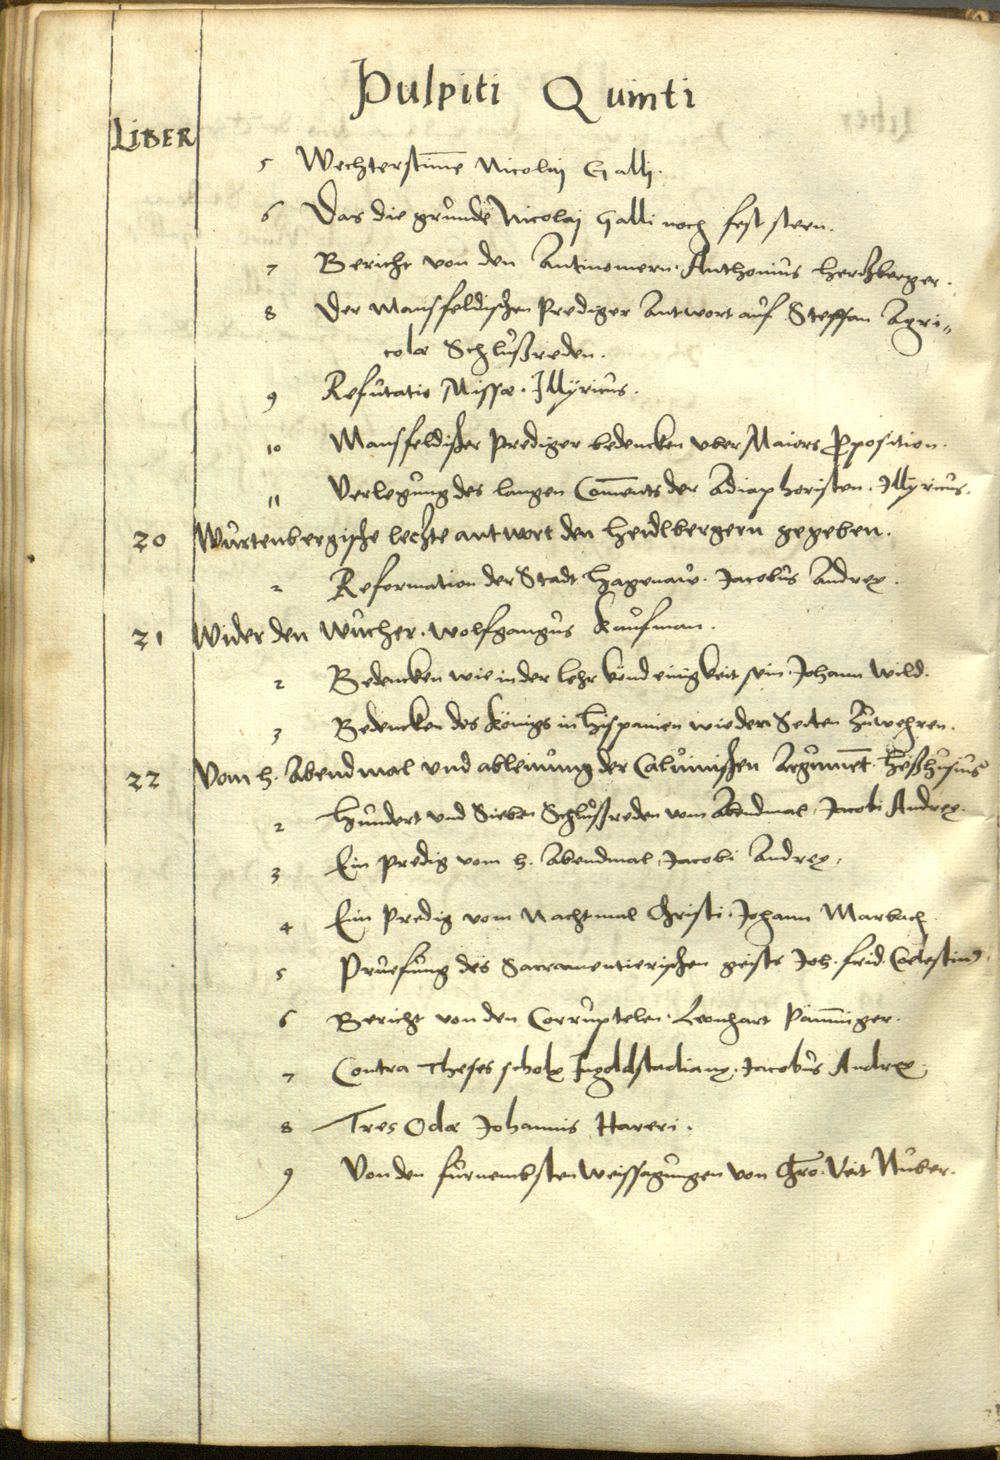 Pulpiti Quinti
LIBER
5 Wechterstim̄e Nicolaj Galli.
6 Das die grunde Nicolaj Galli noch fest steen.
7 Bericht von den Antinomern. Anthonius Hertzberger.
8 Der Mansfeldischen Prediger Antwort auf Steffan Agri„
colæ Schlußreden.
9 Refutatio Missæ. Illÿricus.
10 Mansfeldischer Prediger bedencken vber Maiors Proposition.
11 Verlegung des langen Com̄ents der Adiaphoristen. Illÿricus.
20 Würtenbergische lechte antwort den Heidlbergern gegeben.
2 Reformation der Stadt Hagenaw. Jacobus Andreę.
21 Wider den Wucher. Wolfgangus Kaufman.
2 Bedencken wie in der lehr könd einigkeit sein. Johann Wild.
3 Bedencken des Königs in Hispanien wie den Secten Zuwehren.
22 Vom H. Abendmal vnd ableinung der Caluinischen Argument. Heßhusius
2 Hundert vnd Sieben Schlußreden vom Abendmal, Jacobi Andreę.
3 Ein Predig vom H. Abendmal, Jacobi Andreę.
4 Ein Predig vom Nachtmal Christi. Johann Marbach
5 Pruefung des Sacramentierischen geists Joh. frid. Cœlestinus.
6 Bericht von den Corruptelen. Leonhart Päm̄inger.
7 Contra Theses scholę Ingoldstadianę. Jacobus Andreę.
8 Tres Odæ Johannis Hareri.
9 Von den furnembsten Weissagungen von Chro. Veit Nuber.